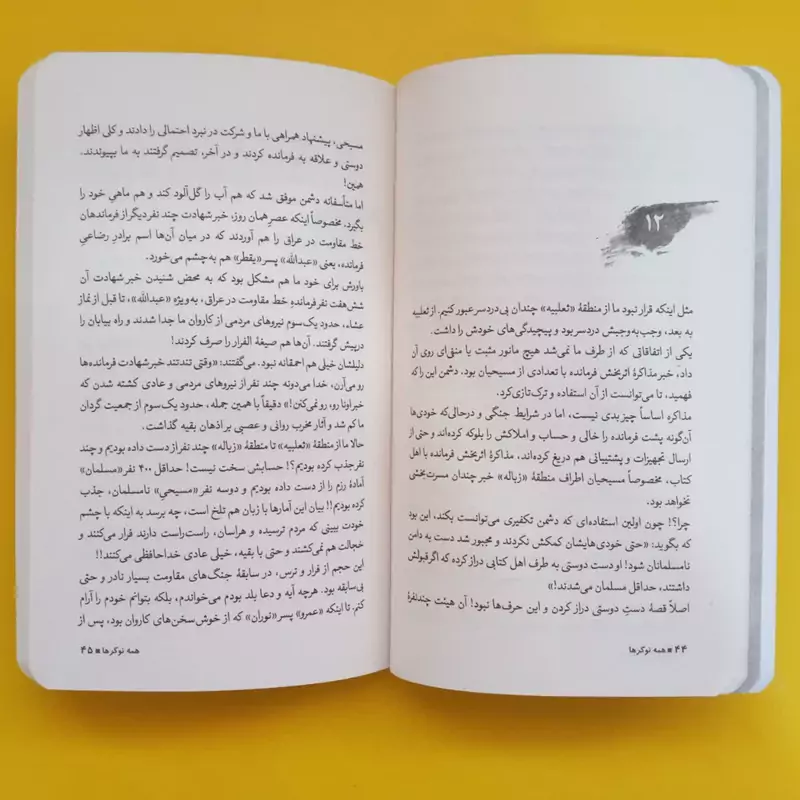 ۱۲
مثل اینکه قرار نبود ما از منطقهٔ «ثعلبیه» چندان بی‌دردسر عبور کنیم. از ثعلبیه
به بعد، وجب‌به‌وجبش دردسر بود و پیچیدگی‌های خودش را داشت.
یکی از اتفاقاتی که از طرف ما نمی‌شد هیچ مانور مثبت یا منفی‌ای روی آن
داد، خبر مذاکرهٔ اثربخش فرمانده با تعدادی از مسیحیان بود. دشمن این را که
فهمید، تا می‌توانست از آن استفاده و ترک‌تازی کرد.
مذاکره اساساً چیز بدی نیست، اما در شرایط جنگی و درحالی‌که خودی‌ها
آن‌گونه پشت فرمانده را خالی و حساب و املاکش را بلوکه کرده‌اند و حتی از
ارسال تجهیزات و پشتیبانی هم دریغ کرده‌اند، مذاکرهٔ اثربخش فرمانده با اهل
کتاب، مخصوصاً مسیحیان اطراف منطقهٔ «زباله» خبر چندان مسرت‌بخشی
نخواهد بود.
چرا؟! چون اولین استفاده‌ای که دشمن تکفیری می‌توانست بکند، این بود
که بگوید: «حتی خودی‌هایشان کمکش نکردند و مجبور شد دست به دامن
نامسلمانان شود! او دست دوستی به طرف اهل کتابی دراز کرده که اگر قبولش
داشتند، حداقل مسلمان می‌شدند!»
اصلاً قصهٔ دستِ دوستی دراز کردن و این حرف‌ها نبود! آن هیئت چندنفرهٔ
۴۴ ■ همه نوکرها
مسیحی، پیشنهاد همراهی با ما و شرکت در نبرد احتمالی را دادند و کلی اظهار
دوستی و علاقه به فرمانده کردند و در آخر، تصمیم گرفتند به ما بپیوندند.
همین!
اما متأسفانه دشمن موفق شد که هم آب را گل‌آلود کند و هم ماهیِ خود را
بگیرد، مخصوصاً اینکه عصرِ همان روز، خبر شهادت چند نفر دیگر از فرماندهان
خط مقاومت در عراق را هم آوردند که در میان آن‌ها اسم برادرِ رضاعیِ
فرمانده، یعنی «عبدالله» پسر «یقطر» هم به‌چشم می‌خورد.
باورش برای خود ما هم مشکل بود که به محض شنیدن خبر شهادت آن
شش‌هفت نفر فرماندهِ خط مقاومت در عراق، به‌ویژه «عبدالله»، تا قبل از نماز
عشاء، حدود یک‌سوم نیروهای مردمی از کاروان ما جدا شدند و راه بیابان را
درپیش گرفتند. آن‌ها هم صیغهٔ الفرار را صرف کردند!
دلیلشان خیلی هم احمقانه نبود. می‌گفتند: «وقتی تندتند خبر شهادت فرمانده‌ها
رو می‌آرن، خدا می‌دونه چند نفر از نیروهای مردمی و عادی کشته شدن که
خبر اونا رو، رو نمی‌کنن!» دقیقاً با همین جمله، حدود یک‌سوم از جمعیت گردان
ما کم شد و آثار مخرب روانی و عصبی بر اذهان بقیه گذاشت.
حالا ما از منطقهٔ «ثعلبیه» تا منطقهٔ «زباله» چند نفر از دست داده بودیم و چند
نفر جذب کرده بودیم؟! حسابش سخت نیست! حداقل ۴۰۰ نفر «مسلمان»
آمادهٔ رزم را از دست داده بودیم و دوسه نفر «مسیحیِ» نامسلمان، جذب
کرده بودیم!! بیان این آمارها با زبان هم تلخ است، چه برسد به اینکه با چشم
خودت ببینی که مردم ترسیده و هراسان، راست‌راست دارند فرار می‌کنند و
خجالت هم نمی‌کشند و حتی با بقیه، خیلی عادی خداحافظی می‌کنند!!
این حجم از فرار و ترس، در سابقهٔ جنگ‌های مقاومت بسیار نادر و حتی
بی‌سابقه بود. هرچه آیه و دعا بلد بودم می‌خواندم، بلکه بتوانم خودم را آرام
کنم. تا اینکه «عمرو» پسر «نوران» که از خوش‌سخن‌های کاروان بود، پس از
همه نوکرها ■ ۴۵